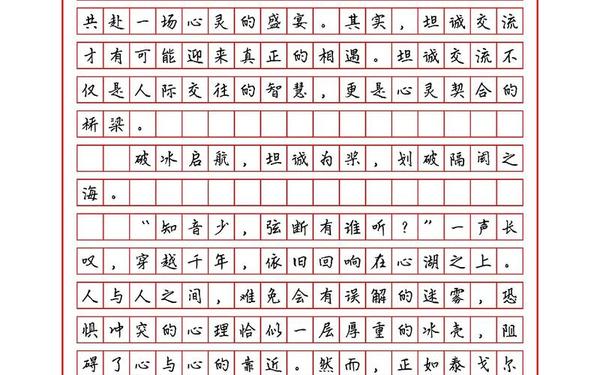 共赴一场心灵的盛宴。其实，坦诚交流
才有可能迎来真正的相遇。坦诚交流不
仅是人际交往的智慧，更是心灵契合的
桥梁。
破冰启航，坦诚为桨，划破隔阂之
海。
“知音少，弦断有谁听？”一声长
叹，穿越千年，依旧回响在心湖之上。
人与人之间，难免会有误解的迷雾，恐
惧冲突的心理恰似一层厚重的冰壳，阻
碍了心与心的靠近。然而，正如泰戈尔